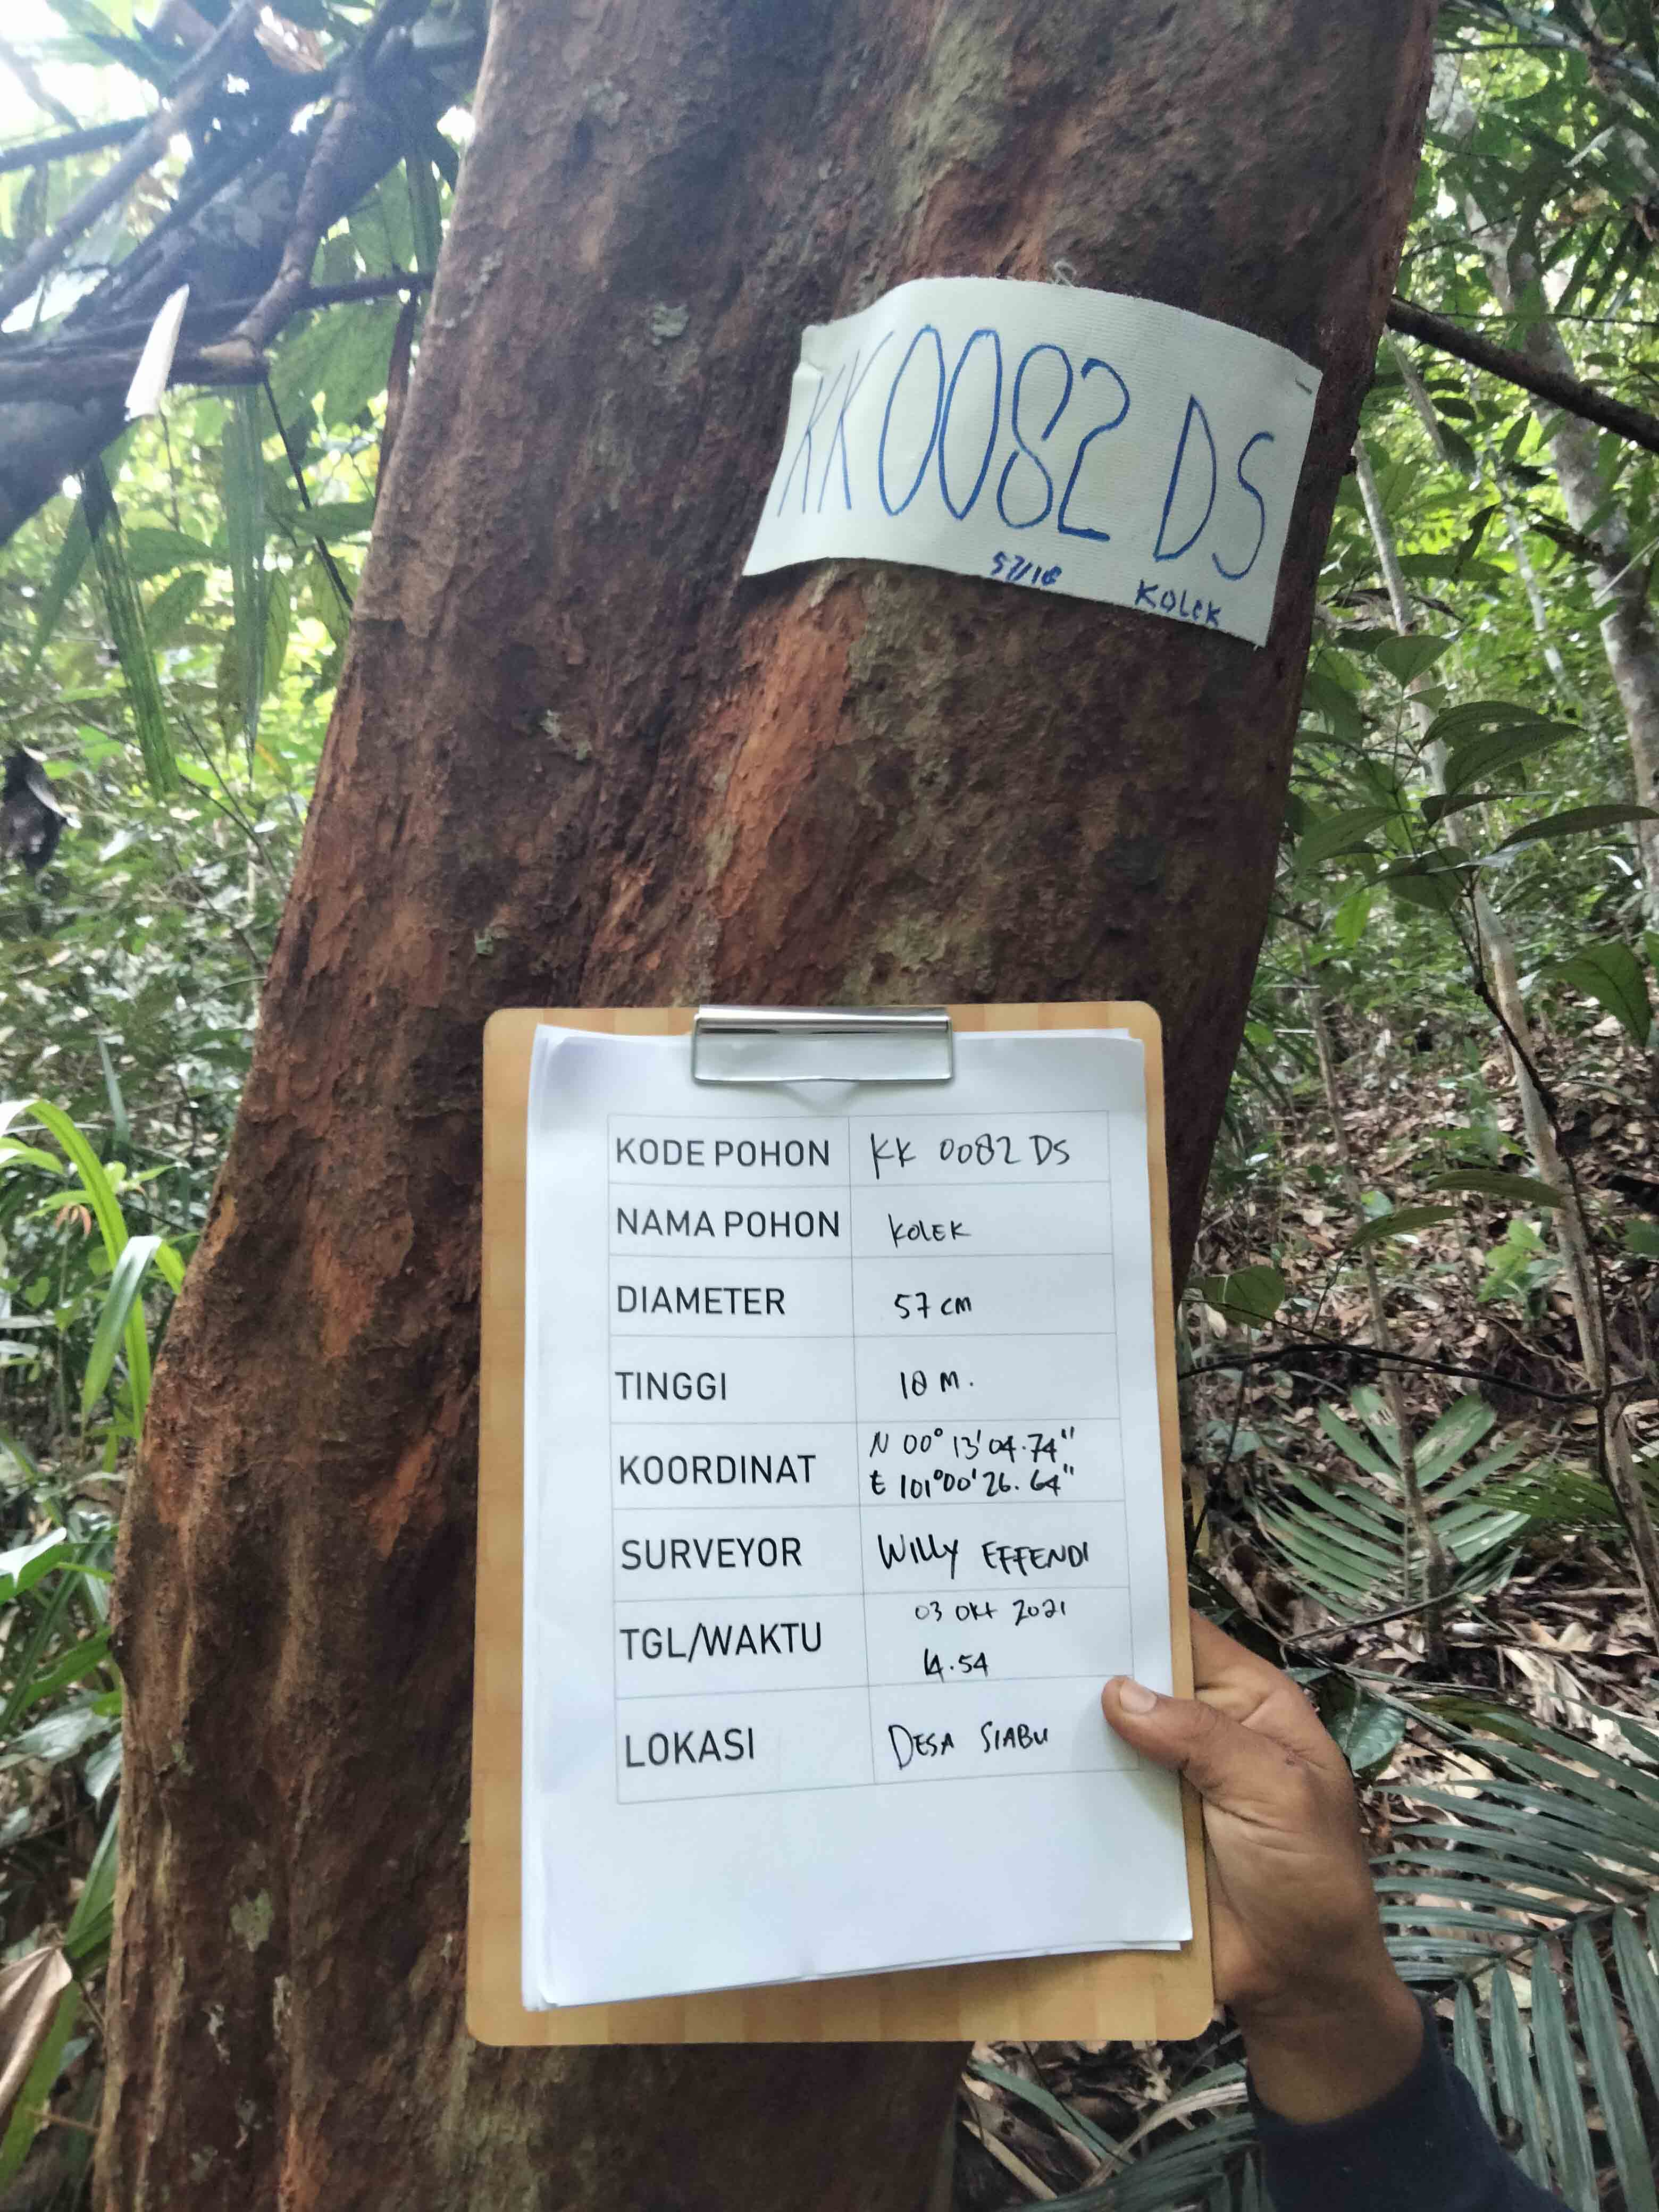 KK0082 DS
57/18 KOLEK
KODE POHON KK 0082 DS
NAMA POHON KOLEK
DIAMETER 57 cm
TINGGI 18 M.
KOORDINAT N 00° 13' 04.74"
E 101°00' 26.64"
SURVEYOR WILLY EFFENDI
TGL/WAKTU 03 Okt 2021
14.54
LOKASI DESA SIABU